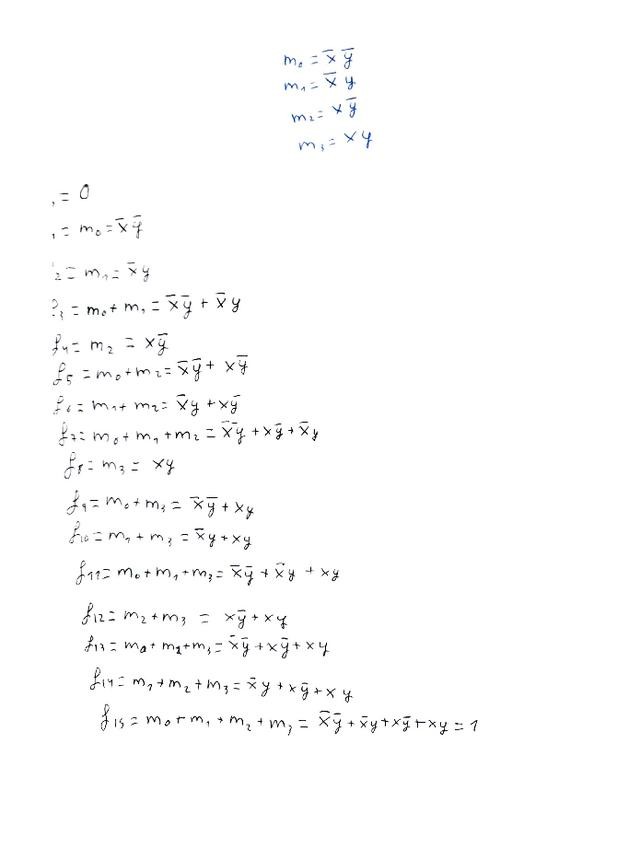 m₀ = x̅ y̅
m₁ = x̅ y
m₂ = x y̅
m₃ = x y
= 0
= m₀ = x̅ y̅
₂ = m₁ = x̅ y
₃ = m₀ + m₁ = x̅ y̅ + x̅ y
f₄ = m₂ = x y̅
f₅ = m₀ + m₂ = x̅ y̅ + x y̅
f₆ = m₁ + m₂ = x̅ y + x y̅
f₇ = m₀ + m₁ + m₂ = x̅ y̅ + x y̅ + x̅ y
f₈ = m₃ = x y
f₉ = m₀ + m₃ = x̅ y̅ + x y
f₁₀ = m₁ + m₃ = x̅ y + x y
f₁₁ = m₀ + m₁ + m₃ = x̅ y̅ + x̅ y + x y
f₁₂ = m₂ + m₃ = x y̅ + x y
f₁₃ = m₀ + m₂ + m₃ = x̅ y̅ + x y̅ + x y
f₁₄ = m₁ + m₂ + m₃ = x̅ y + x y̅ + x y
f₁₅ = m₀ + m₁ + m₂ + m₃ = x̅ y̅ + x̅ y + x y̅ + x y = 1